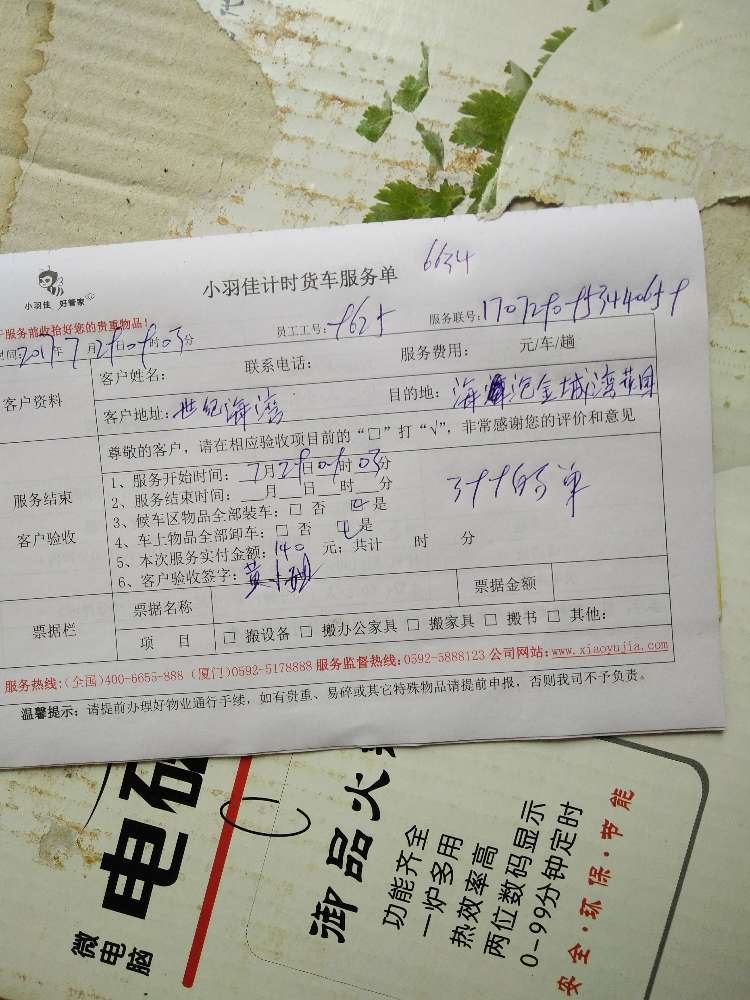 6634
小羽佳 好管家
小羽佳计时货车服务单
服务前收拾好您的贵重物品!
2017年7月2 日 时03分 员工工号: 服务联号:
客户资料
客户姓名: 联系电话: 服务费用: 元/车/趟
客户地址:世纪海湾 目的地:海 金城湾花园
尊敬的客户,请在相应验收项目前的“□”打“√”,非常感谢您的评价和意见
服务结束
客户验收
1、服务开始时间: 7月2 日 时03分
2、服务结束时间: 月 日 时 分
3、候车区物品全部装车:□ 否 ☑是
4、车上物品全部卸车:□ 否 ☑是
5、本次服务实付金额:140元;共计 时 分
6、客户验收签字:黄
的单
票据栏
票据名称 票据金额
项 目 □ 搬设备 □ 搬办公家具 □ 搬家具 □ 搬书 □ 其他:
服务热线:(全国)400-6655-888 (厦门)0592-5178888 服务监督热线:0592-5888123 公司网站:www.xiaoyujia.com
温馨提示:请提前办理好物业通行手续,如有贵重、易碎或其它特殊物品请提前申报,否则我司不予负责。
微电脑
电磁
御品火
功能齐全
一炉多用
热效率高
两位数码显示
0-99分钟定时
安全·环保·节能